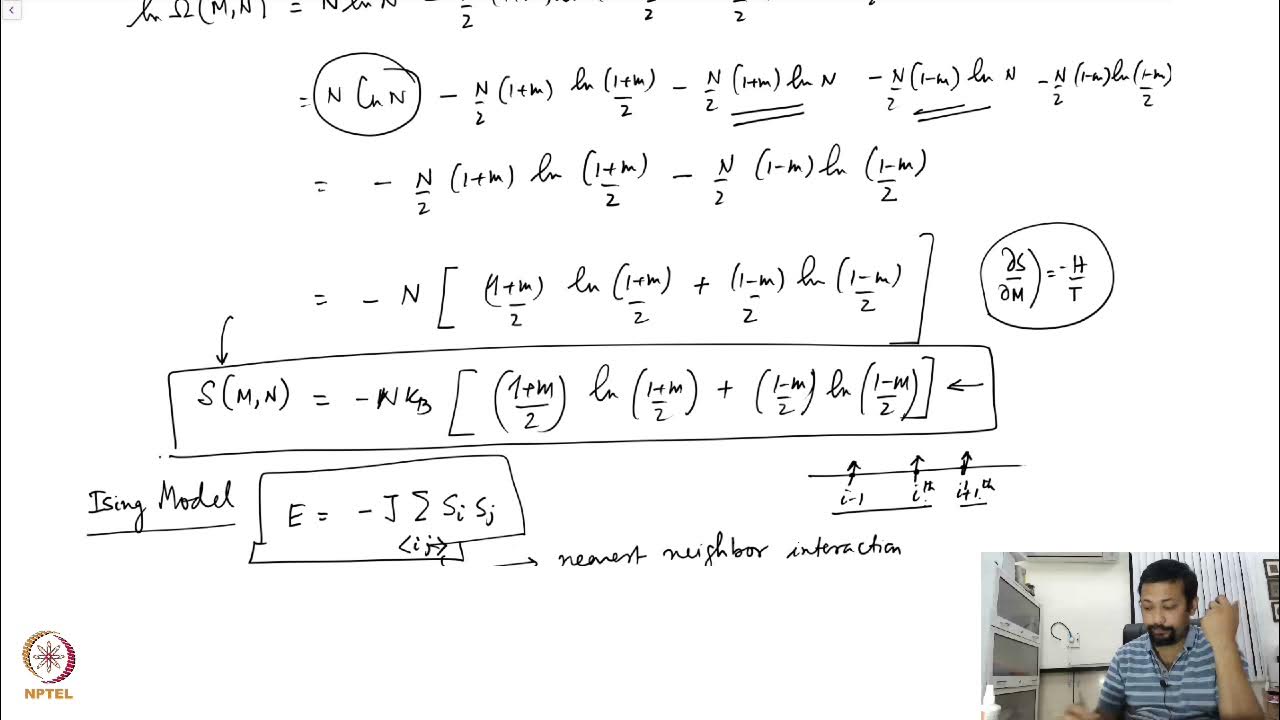 ln Ω(M,N) = N ln N
= N ln N - N/2 (1+m) ln (1+m)/2 - N/2 (1+m) ln N - N/2 (1-m) ln N - N/2 (1-m) ln (1-m)/2
= - N/2 (1+m) ln (1+m)/2 - N/2 (1-m) ln (1-m)/2
= - N [ (1+m)/2 ln (1+m)/2 + (1-m)/2 ln (1-m)/2 ]
∂S/∂M ) = -H/T
S(M,N) = - N k_B [ (1+m)/2 ln (1+m)/2 + (1-m)/2 ln (1-m)/2 ] ←
Ising Model
E = - J Σ S_i S_j
<ij>
i-1 i^th i+1^th
→ nearest neighbor interaction
NPTEL